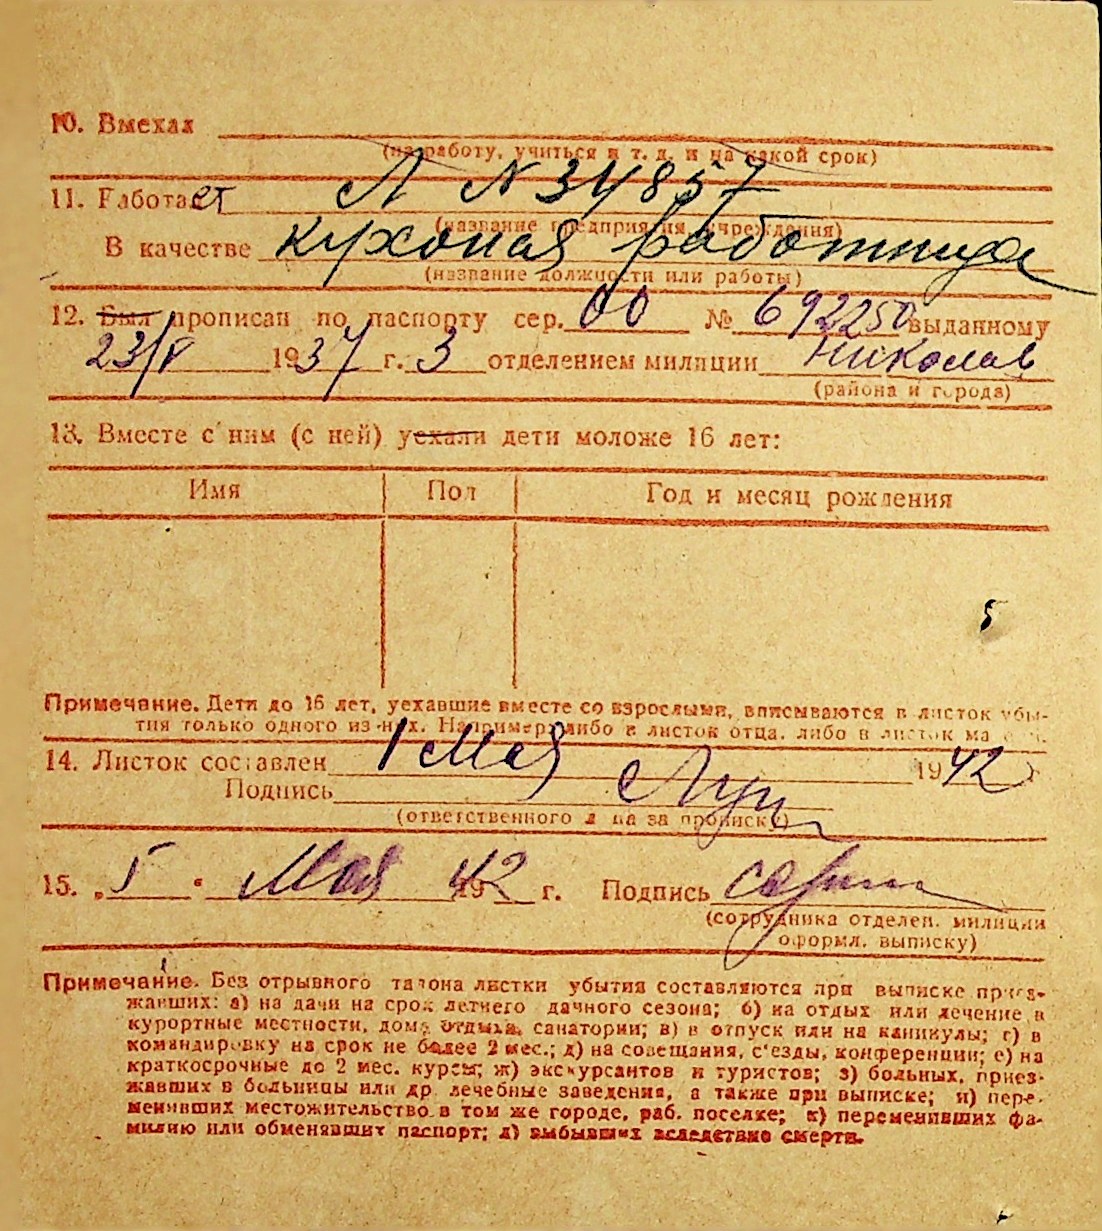 10. Выехал
(на работу, учиться и т. д. и на какой срок)
11. Работает Л N 34857
(название предприятия, учреждения)
В качестве кухоная работница
(название должности или работы)
12. Был прописан по паспорту сер. 00 № 692250 выданному
23/V 1937 г. 3 отделением милиции Николаев
(района и города)
13. Вместе с ним (с ней) уехали дети моложе 16 лет:
Имя Пол Год и месяц рождения
5
Примечание. Дети до 16 лет, уехавшие вместе со взрослыми, вписываются в листок убы-
тия только одного из них. Например: либо в листок отца, либо в листок матери.
14. Листок составлен 1 Мая 1942 г.
Подпись
(ответственного лица за прописку)
15. „1“ Мая 1942 г. Подпись
(сотрудника отделен. милиции
оформл. выписку)
Примечание. Без отрывного талона листки убытия составляются при выписке приез-
жавших: а) на дачи на срок летнего дачного сезона; б) на отдых или лечение в
курортные местности, дома отдыха, санатории; в) в отпуск или на каникулы; г) в
командировку на срок не более 2 мес.; д) на совещания, с'езды, конференции; е) на
краткосрочные до 2 мес. курсы; ж) экскурсантов и туристов; з) больных, приез-
жавших в больницы или др. лечебные заведения, а также при выписке; и) пере-
менивших местожительство в том же городе, раб. поселке; к) переменивших фа-
милию или обменявших паспорт; л) выбывших вследствие смерти.